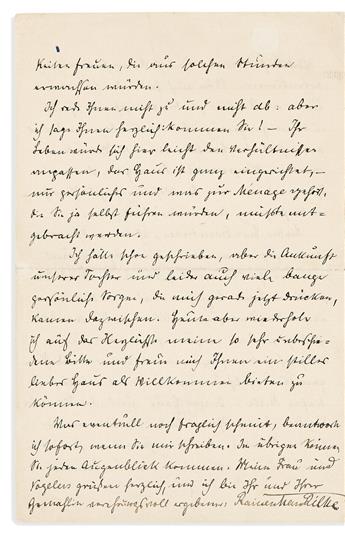 keiten freuen, die aus solchen Stunden
erwachsen würden.
Ich rede Ihnen nicht zu und nicht ab: aber
ich sage Ihnen herzlich: kommen Sie! – Ihr
Leben würde sich hier leicht den Verhältnissen
anpassen, das Haus ist ganz eingerichtet, –
nur persönliches und was zur Menage gehört,
die Sie ja selbst führen würden, müßte mit-
gebracht werden.
Ich hätte schon geschrieben, aber die Ankunft
unserer Tochter und leider auch viele bange
persönliche Sorgen, die mich gerade jetzt drücken,
kamen dazwischen. Heute aber wiederhole
ich auf das Herzlichste meine so sehr unbeschei-
dene Bitte und freue mich Ihnen ein stilles
liebes Haus als Willkommen bieten zu
können.
Was eventuell noch fraglich scheint, beantworte
ich sofort, wenn Sie mir schreiben. Im übrigen können
Sie jeden Augenblick kommen. Meine Frau und
Vogelers grüßen herzlich, und ich bin Ihr und Ihrer
Gemahlin verehrungsvoll ergebener: Rainer Maria Rilke